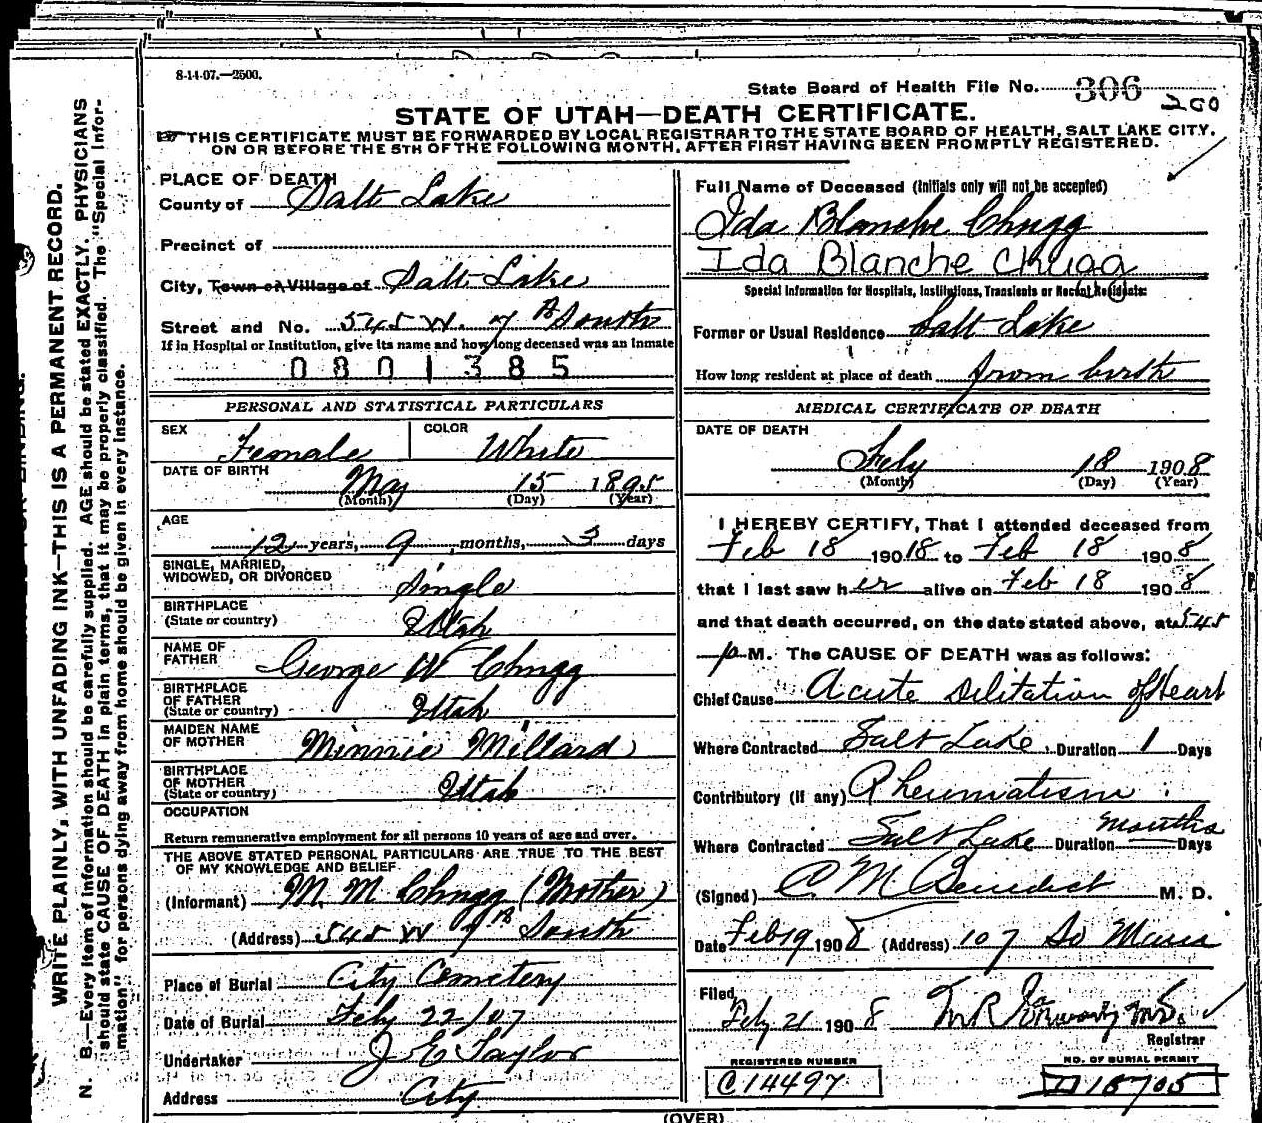 8-14-07.—2500.
State Board of Health File No. 306
200
STATE OF UTAH—DEATH CERTIFICATE.
THIS CERTIFICATE MUST BE FORWARDED BY LOCAL REGISTRAR TO THE STATE BOARD OF HEALTH, SALT LAKE CITY,
ON OR BEFORE THE 5TH OF THE FOLLOWING MONTH, AFTER FIRST HAVING BEEN PROMPTLY REGISTERED.
WRITE PLAINLY, WITH UNFADING INK—THIS IS A PERMANENT RECORD.
N. B.—Every item of information should be carefully supplied. AGE should be stated EXACTLY. PHYSICIANS
should state CAUSE OF DEATH in plain terms, that it may be properly classified. The "Special Infor-
mation" for persons dying away from home should be given in every instance.
PLACE OF DEATH
County of Salt Lake
Precinct of
City, Town or Village of Salt Lake
Street and No. 545 W. 7th South
If in Hospital or Institution, give its name and how long deceased was an inmate
0801385
PERSONAL AND STATISTICAL PARTICULARS
SEX Female COLOR White
DATE OF BIRTH
May 15 1895
(Month) (Day) (Year)
AGE
12 years, 9 months, 3 days
SINGLE, MARRIED,
WIDOWED, OR DIVORCED Single
BIRTHPLACE
(State or country) Utah
NAME OF
FATHER George W Chugg
BIRTHPLACE
OF FATHER
(State or country) Utah
MAIDEN NAME
OF MOTHER Minnie Millard
BIRTHPLACE
OF MOTHER
(State or country) Utah
OCCUPATION
Return remunerative employment for all persons 10 years of age and over.
THE ABOVE STATED PERSONAL PARTICULARS ARE TRUE TO THE BEST
OF MY KNOWLEDGE AND BELIEF
(Informant) M. M Chugg (Mother)
(Address) 545 W 7th South
Place of Burial City Cemetery
Date of Burial Feby 22/07
Undertaker J E Taylor
Address City
Full Name of Deceased (Initials only will not be accepted)
Ida Blanche Chugg
Ida Blanche Chugg
Special Information for Hospitals, Institutions, Transients or Recent Residents:
Former or Usual Residence Salt Lake
How long resident at place of death from birth
MEDICAL CERTIFICATE OF DEATH
DATE OF DEATH
Feby 18 1908
(Month) (Day) (Year)
I HEREBY CERTIFY, That I attended deceased from
Feb 18 19018 to Feb 18 1908
that I last saw her alive on Feb 18 1908
and that death occurred, on the date stated above, at 545
p M. The CAUSE OF DEATH was as follows:
Chief Cause Acute Dilitation of Heart
Where Contracted Salt Lake Duration 1 Days
Contributory (if any) Rheumatism
Where Contracted Salt Lake Duration Months Days
(Signed) C M Benedict M. D.
Date Feb 19 1908 (Address) 107 So Main
Filed
Feby 21 1908
Registrar
REGISTERED NUMBER
C14497
NO. OF BURIAL PERMIT
D15705
(OVER)